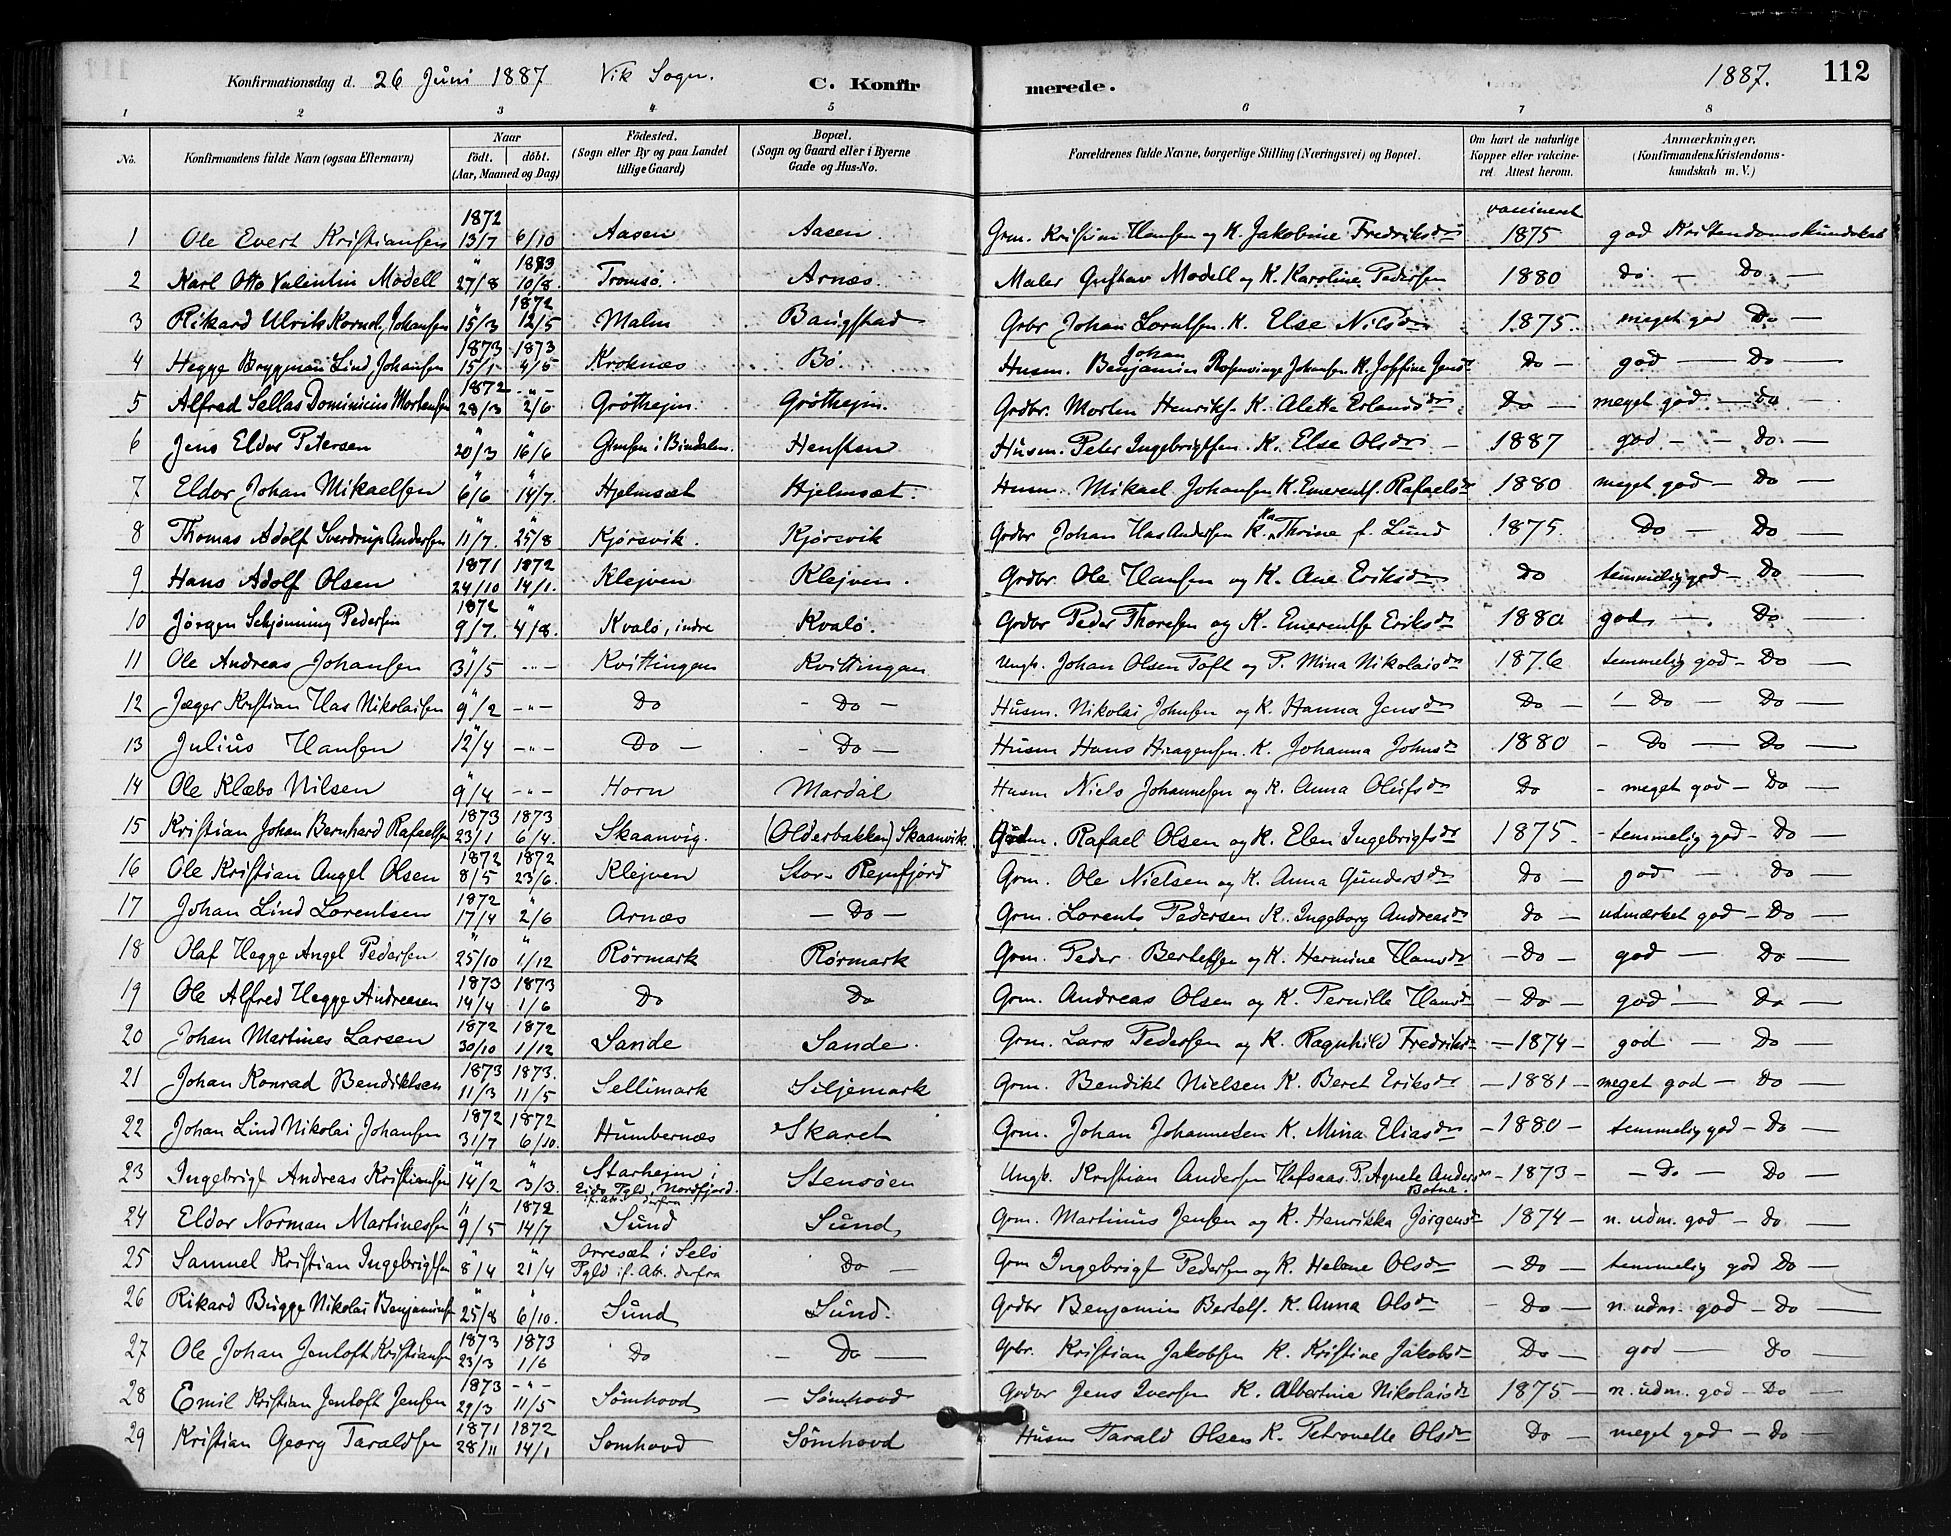 Konfirmationsdag d. 26 Juni 1887 Vik Sogn. C. Konfirmerede. 1887. 112
1 2 3 4 5 6 7 8
No. Konfirmandens fulde Navn (ogsaa Efternavn) Naar födt. döbt. (Aar, Maaned og Dag) Födested. (Sogn eller By og paa Landet tillige Gaard) Bopæl. (Sogn og Gaard eller i Byerne Gade og Hus-No. Forældrenes fulde Navne, borgerlige Stilling (Næringsvei) og Bopæl. Om havt de naturlige Kopper eller vakcineret. Attest herom. Anmærkninger. (Konfirmandens Kristendomskundskab m. V.)
1 Ole Evert Kristiansen 1872 13/7 6/10 Aasen Aasen Grm. Kristian Hansen og K. Jakobine Fredriksdr vaccineret 1875 god Kristendomskundskab
2 Karl Otto Valentin Modell " 27/8 1873 10/8 Tromsø Arnæs Maler Gustav Modell og K. Karoline Pedersen 1880 Do — Do —
3 Rikard Ulrik Kornel. Johansen " 15/3 1872 12/5 Malm Bangstad Grbr Johan Lorntsen K. Else Nilsdr 1875 meget god Do —
4 Hegge Bryggman Lind Johansen 1873 15/1 1873 4/5 Kroknæs Bø Husm. Johan Benjamin Rosenvinge Johansen K. Josefine Jensdr Do — god — Do —
5 Alfred Sellas Dominicus Mortensen 1872 28/3 — " — 2/6 Grøtheim Grøtheim. Grdbr. Morten Henriks. K. Aletta Erlandsdr Do — meget god — do —
6 Jens Eldor Petersen " 20/3 " 16/6 i Bindalen Hensten Husm. Peter Ingebrigtsen K. Else Olsdr — 1887 god — — Do —
7 Eldor Johan Mikaelsen " 6/6 " 14/7. Hjelmsæt Hjelmsæt. Husm. Mikael Johansen K. Emerents. Rafaelsdr 1880 meget god — Do —
8 Thomas Adolf Sverdrup Andersen " 11/7. " 25/8 Kjørsvik. Kjørsvik Grdbr Johan Has Andersen K. Thrine f. Lund 1875 Do — Do —
9. Hans Adolf Olsen 1871 24/10 1872 14/1. Klejven Klejven. Grdbr. Ole Hansen og K. Ane Eriksdr Do temmelig god — Do —
10 Jørgen Schjønning Pedersen 1872 9/7. " 4/8. Kvalø, indre Kvalø. Grdbr Peder Thoresen og K. Emerentse Eriksdr 1880 god — Do —
11 Ole Andreas Johansen " 31/5 — " — Kvittingen Kvittingen Ungk. Johan Olsen Toft og P. Mina Nikolaisdr 1876 temmelig god — Do —
12 Jæger Kristian Has Nikolaisen " 9/2 — " — Do — Do — Husm. Nikolai Johnsen og K. Hanna Jensdr Do — — Do — Do —
13 Julius Hansen " 12/4 — " — Do — — Do — Husm Hans Hragensen K. Johanna Johnsdr 1880 — Do — Do —
14 Ole Klæbo Nilsen " 9/4 — " — Horn Mardal Husm Niels Johannesen og K. Anna Olufsdr Do — meget god — Do —
15 Kristian Johan Bernhard Rafaelsen 1873 23/1 1873 6/4. Skaanvig. (Olderbakken) Skaanvik Rafael Olsen og K. Elen Ingebrigtsdr 1875 — temmelig god — Do —
16 Ole Kristian Angel Olsen 1872 8/5 1872 23/6. Klejven Stor-Rejnfjord Grm. Ole Nielsen og K. Anna Gundersdr Do — god — Do —
17 Johan Lind Lorentsen 1872 17/4 " 2/6 Arnæs — Do — Grm. Lorents Pedersen K. Ingeborg Andreasdr do — udmærket god — Do —
18 Olaf Hegge Angel Pedersen " 25/10 " 1/12 Rørmark Rørmark Grm. Peder Bertelsen og K. Hermine Hansdr — Do — god — Do —
19 Ole Alfred Hegge Andreasen 1873 14/4 1873 1/6 Do Do Grm. Andreas Olsen og K. Pernille Hansdr — Do — god — Do —
20 Johan Martines Larsen 1872 30/10 1872 1/12 Sande Sande. Grm. Lars Pedersen og K. Ragnhild Fredriksdr — 1874 — god — Do —
21 Johan Konrad Bendiktsen 1873 11/3 1873. 11/5 Sellimark Siljemark Grm. Bendikt Nielsen K. Beret Eriksdr — 1881 — meget god — Do —
22 Johan Lind Nikolai Johansen 1872 31/7 1872 6/10. Humbernæs Skaret Grm. Johan Johannesen K. Mina Eliasdr — 1880 — temmelig god — Do —
23 Ingebrigt Andreas Kristiansen " 14/2 " 3/3. Starheim i Eids Pgld. i Nordfjord. if. Att. derfra Stensøen Ungk. Kristian Andersen Hafsaas P. Agnete Andersdr Botna. — 1873 — — Do — Do —
24 Eldor Norman Martinessen " 9/5 1872 14/7 Sund Sund Grm. Martinus Jensen og K. Henrikka Jørgensdr 1874 — n. udm. god — Do —
25 Samuel Kristian Ingebrigtsen " 8/4 " 21/4 Orresæt i Selø Pgld if. Att. derfra Do — Grm Ingebrigt Pedersen og K. Helene Olsdr — Do — temmelig god Do —
26 Rikard Bugge Nikolai Benjaminsen " 25/8 " 6/10. Sund Sund. Grdbr Benjamin Bertels. K. Anna Olsdr — Do — n. udm. god — Do —
27 Ole Johan Jentoft Kristiansen 1873 23/3 1873 1/6 Do — Do — Grbr. Kristian Jakobsen K. Kristine Jakobsdr Do — god — Do —
28 Emil Kristian Jentoft Jensen 1873 29/3 — " — 11/5 Sømhovd — Sømhovd Grdbr Jens Iversen K. Albertine Nikolaisdr 1875 — n. udm. god — Do —
29 Kristian Georg Taraldsen 1871 28/11 1872 14/1 Somhovd Sømhovd Husm Tarald Olsen K. Petronelle Olsdr Do — meget god — Do —